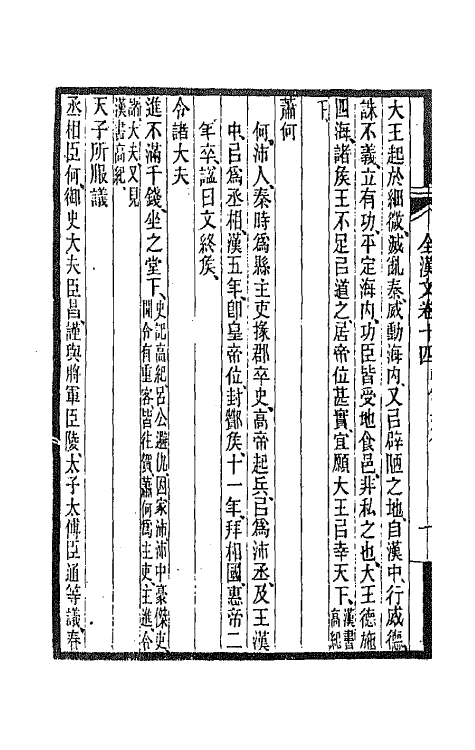 全漢文卷十四
大王起於細微、滅亂秦、威動海內、又㠯辟陋之地、自漢中、行威德、
誅不義、立有功、平定海內、功臣皆受地食邑、非私之也、大王德施
四海、諸矦王不足㠯道之、居帝位甚實宜、願大王㠯幸天下、漢書高紀
下、
蕭何
何、沛人、秦時爲縣主吏掾、郡卒史、高帝起兵、㠯爲沛丞、及王漢
中、㠯爲丞相、漢五年、卽皇帝位、封酇矦、十一年、拜相國、惠帝二
年卒、諡曰文終矦、
令諸大夫
進不滿千錢、坐之堂下、史記高紀、呂公避仇、因家沛、沛中豪傑吏、聞令有重客、皆往賀、蕭何爲主吏、主進、令
諸大夫、又見漢書高紀、
天子所服議
丞相臣何、御史大夫臣昌、謹與將軍臣陵、太子太傅臣通等議、春